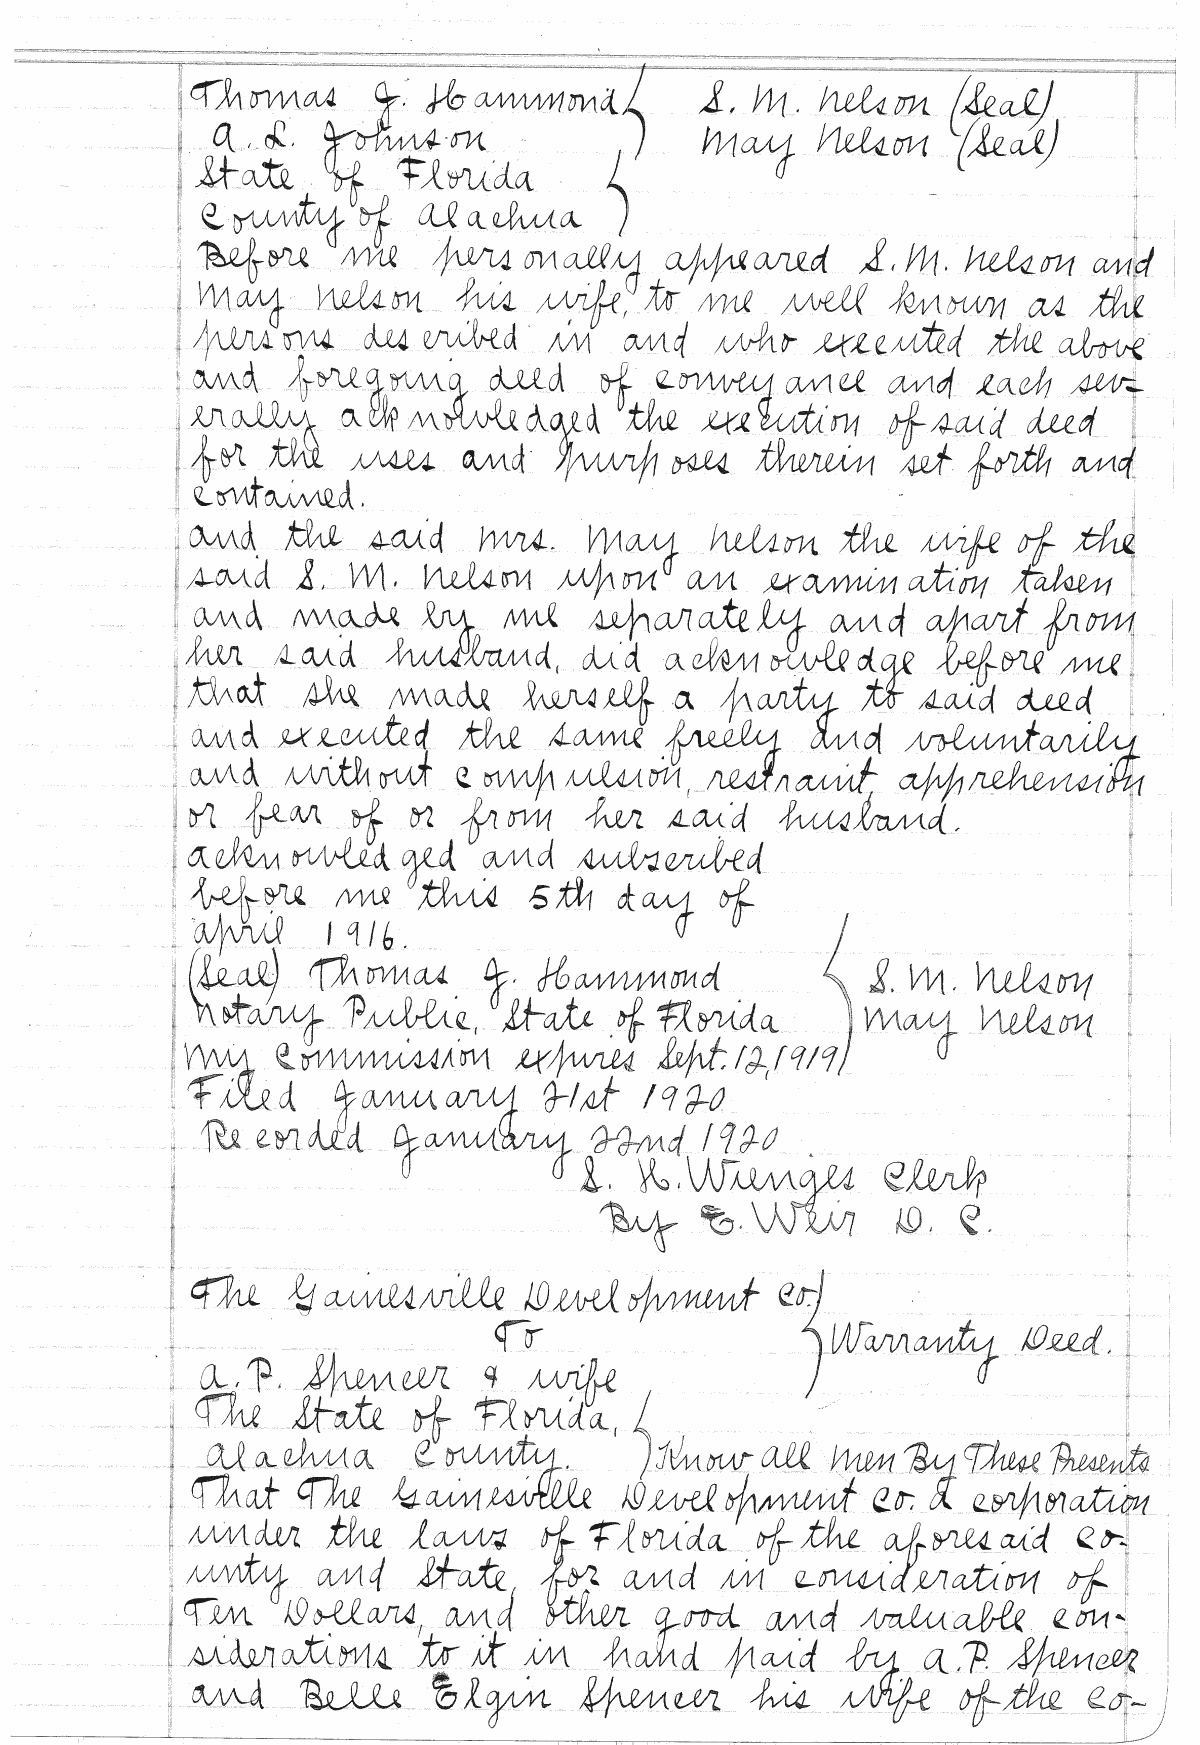 Thomas J. Hammond S. M. Nelson (Seal)
A. L. Johnson May Nelson (Seal)
State of Florida
County of Alachua
Before me personally appeared S. M. Nelson and
May Nelson his wife, to me well known as the
persons described in and who executed the above
and foregoing deed of conveyance and each sev=
erally acknowledged the execution of said deed
for the uses and purposes therein set forth and
contained.
And the said Mrs. May Nelson the wife of the
said S. M. Nelson upon an examination taken
and made by me separately and apart from
her said husband, did acknowledge before me
that she made herself a party to said deed
and executed the same freely and voluntarily
and without compulsion, restraint, apprehension
or fear of or from her said husband.
Acknowledged and subscribed
before me this 5th day of
April 1916.
(Seal) Thomas J. Hammond S. M. Nelson
Notary Public, State of Florida May Nelson
My Commission expires Sept. 12, 1919
Filed January 21st 1920
Recorded January 22nd 1920
S. H. Wienges Clerk
By E. Weir D. C.
The Gainesville Development Co.
To Warranty Deed.
A. P. Spencer & wife
The State of Florida,
Alachua County. Know All Men By These Presents
That The Gainesville Development Co. a corporation
under the laws of Florida of the aforesaid Co-
unty and State, for and in consideration of
Ten Dollars, and other good and valuable con-
siderations to it in hand paid by A. P. Spencer
and Belle Elgin Spencer his wife of the Co-